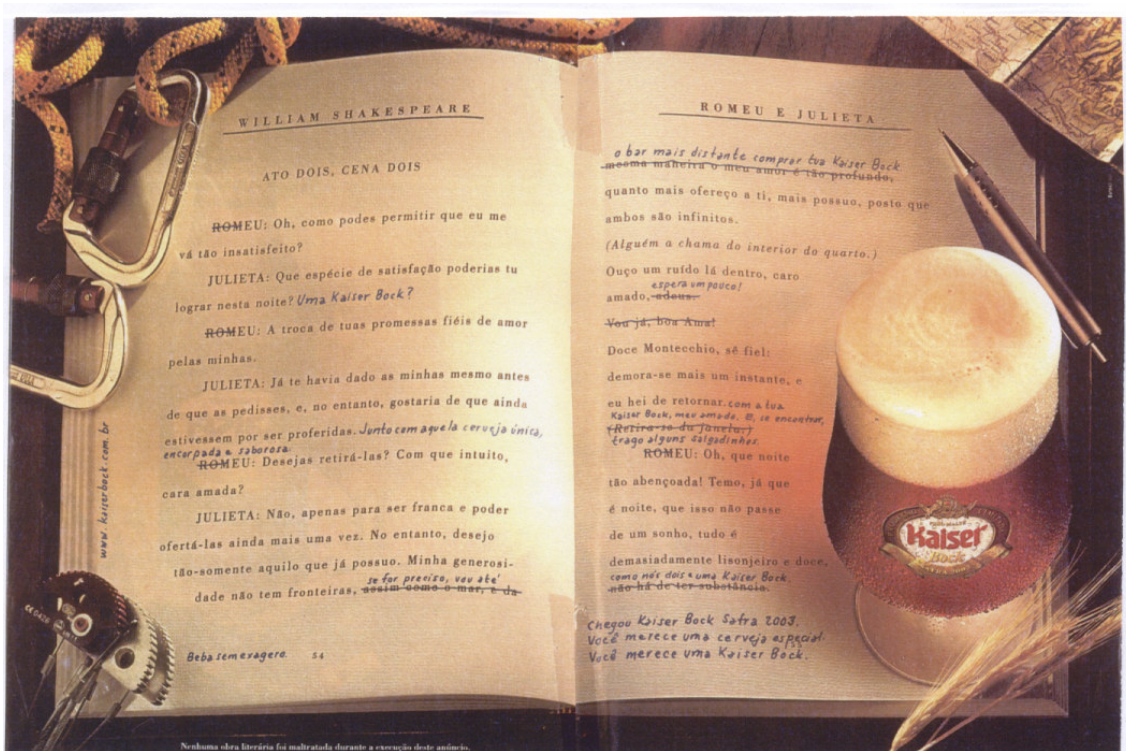 WILLIAM SHAKESPEARE
ATO DOIS, CENA DOIS
ROMEU: Oh, como podes permitir que eu me
vá tão insatisfeito?
JULIETA: Que espécie de satisfação poderias tu
lograr nesta noite? Uma Kaiser Bock?
ROMEU: A troca de tuas promessas fiéis de amor
pelas minhas.
JULIETA: Já te havia dado as minhas mesmo antes
de que as pedisses, e, no entanto, gostaria de que ainda
estivessem por ser proferidas. Junto com aquela cerveja única,
encorpada e saborosa.
ROMEU: Desejas retirá-las? Com que intuito,
cara amada?
JULIETA: Não, apenas para ser franca e poder
ofertá-las ainda mais uma vez. No entanto, desejo
tão-somente aquilo que já possuo. Minha generosi-
se for preciso, vou até
dade não tem fronteiras, assim como o mar, e da
Beba sem exagero. 54
www.kaiserbock.com.br
ROMEU E JULIETA
o bar mais distante comprar tua Kaiser Bock
mesma maneira o meu amor é tão profundo,
quanto mais ofereço a ti, mais possuo, posto que
ambos são infinitos.
(Alguém a chama do interior do quarto.)
Ouço um ruído lá dentro, caro
espera um pouco!
amado, adeus.
Vou já, boa Ama!
Doce Montecchio, sê fiel:
demora-se mais um instante, e
eu hei de retornar. com a tua
Kaiser Bock, meu amado. E, se encontrar,
(Retira-se da janela.)
trago alguns salgadinhos.
ROMEU: Oh, que noite
tão abençoada! Temo, já que
é noite, que isso não passe
de um sonho, tudo é
demasiadamente lisonjeiro e doce,
como nós dois e uma Kaiser Bock.
não há de ter substância.
Chegou Kaiser Bock Safra 2003.
Você merece uma cerveja especial.
Você merece uma Kaiser Bock.
Kaiser
Bock
Nenhuma obra literária foi maltratada durante a execução deste anúncio.